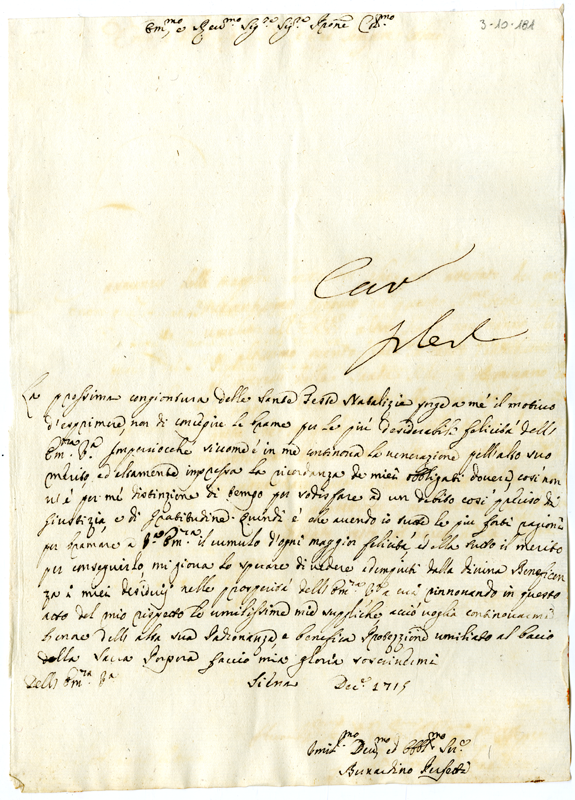 Em.mo e Reu.mo Sig.re Sig.re Prone Col.mo
3-10-181
La prossima congiontura delle Sante Feste Natalizie porge a mé il motivo
d'esprimere non di concepire le brame per le piú desiderabili felicitá dell'
Em.za V.ra Imperciocche siccome é in me continova la venerazione pell'alto suo
merito, ed altamente impressa la ricordanza de miei obbligati doveri, cosi non
vi é per mé distinzione di tempo per sodisfare ad un debito cosi preciso di
Giustizia e di Gratitudine. Quindi é che avendo io tutte le piu forti ragioni
per bramare a V.ra Em.za il cumulo d'ogni maggior felicitá ed ella tutto il merito
per conseguirlo mi giova lo sperare di vedere adempiuti dalla Divina Beneficen
za i miei desiderij nelle prosperitá dell' Em.za V.ra a cui rinnovando in questo
atto del mio rispetto le umilissime mie suppliche, acció voglia continovarmi
l'onore dell' alta sua Padronanza e benefica Protezzione umiliato al bacio
della Sacra Porpora faccio mia gloria
Dell' Em.za V.ra Siena Dec.e 1715
Umil.mo Deu.mo ed Obbl.mo Ser.e
Bernardino Perfetti